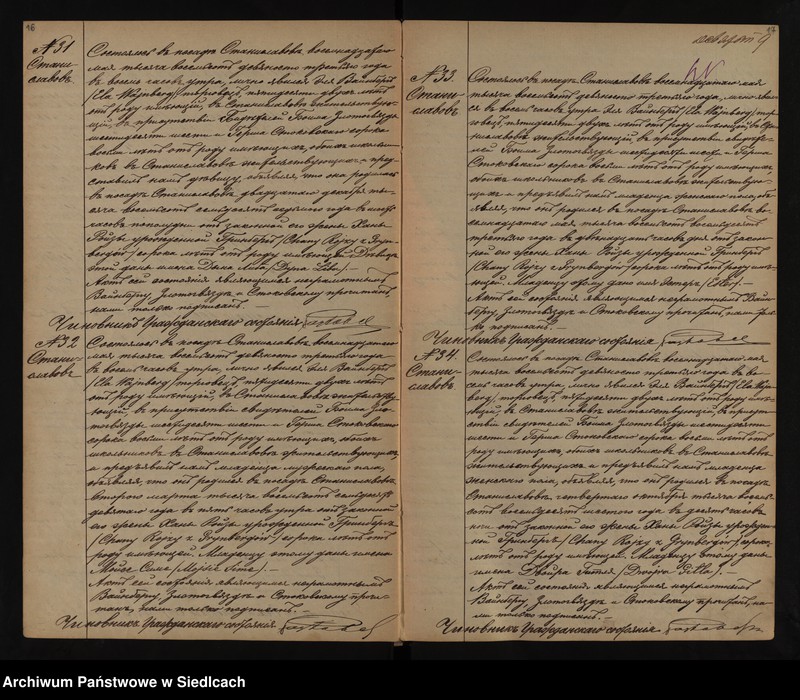 16
№ 31
Стани-
славовъ
Состоялось въ посадѣ Станиславовъ восемнадцатаго
мая тысяча восемьсотъ девяносто третьяго года
въ восемь часовъ утра, лично явился Еля Вайнбергъ
/Ela Wajnberg/ торговецъ, пятидесяти двухъ лѣтъ
отъ роду имѣющій, въ Станиславовѣ жительствую-
щій, въ присутствіи свидѣтелей
шестидесяти шести и Герша Стоковскаго сорока
восьми лѣтъ отъ роду имѣющихъ, обоихъ школьни-
ковъ въ Станиславовѣ жительствующихъ и пред-
ставилъ намъ дѣвицу, объявляя, что она родилась
въ посадѣ Станиславовъ двадцатаго декабря ты-
сяча восемьсотъ семьдесятъ года въ
часовъ пополудни отъ законной его жены Ханы
Ройзы урожденной Гринбергъ /Chany Rojzy z Gryn-
bergów/ сорока лѣтъ отъ роду имѣющей. Дѣвицѣ
этой даны имена Двыра Либа /Dyra Liba/. —
Актъ сей состоянія являющимся неграмотнымъ
Вайнбергу, и Стоковскому прочитанъ,
нами только подписанъ. —
Чиновникъ Гражданскаго состоянія
№ 32
Стани-
славовъ
Состоялось въ посадѣ Станиславовъ восемнадцатаго
мая тысяча восемьсотъ девяносто третьяго года
въ восемь часовъ утра, лично явился Еля Вайнбергъ
/Ela Wajnberg/ торговецъ, пятидесяти двухъ лѣтъ
отъ роду имѣющій, въ Станиславовѣ жительствую-
щій, въ присутствіи свидѣтелей
шестидесяти шести и Герша Стоковскаго
сорока восьми лѣтъ отъ роду имѣющихъ, обоихъ
школьниковъ въ Станиславовѣ жительствующихъ
и предъявилъ намъ младенца мужескаго пола,
объявляя, что онъ родился въ посадѣ Станиславовъ
второго марта тысяча восемьсотъ семьдесятъ
девятаго года въ пять часовъ утра отъ законной
его жены Ханы Ройзы урожденной Гринбергъ
/Chany Rojzy z Grynbergów/ сорока лѣтъ отъ
роду имѣющей. Младенцу этому даны имена
Мойсе Симе /Mojsie Sime/. —
Актъ сей состоянія являющимся неграмотнымъ
Вайнбергу, и Стоковскому прочи-
танъ, нами только подписанъ. —
Чиновникъ Гражданскаго состоянія
№ 33.
Стани-
славовъ
Состоялось въ посадѣ Станиславовъ восемнадцатаго мая
тысяча восемьсотъ девяносто третьяго года, лично явил-
ся въ восемь часовъ утра Еля Вайнбергъ /Ela Wajnberg/ тор-
говецъ, пятидесяти двухъ лѣтъ отъ роду имѣющій, въ Ста-
ниславовѣ жительствующій, въ присутствіи свидѣте-
лей шестидесяти шести и Герша
Стоковскаго сорока восьми лѣтъ отъ роду имѣющихъ,
обоихъ школьниковъ въ Станиславовѣ жительствую-
щихъ и предъявилъ намъ младенца женскаго пола, объ-
являя, что онъ родился въ посадѣ Станиславовъ во-
семнадцатаго мая тысяча восемьсотъ восемьдесятъ
третьяго года въ двѣнадцать часовъ дня отъ закон-
ной его жены Ханы Ройзы урожденной Гринбергъ
/Chany Rojzy z Grynbergów/ сорока лѣтъ отъ роду имѣю-
щей. Младенцу этому дано имя Эстеръ /Ester/. —
Актъ сей состоянія являющимся неграмотнымъ Вайн-
бергу, и Стоковскому прочитанъ, нами толь-
ко подписанъ. —
Чиновникъ Гражданскаго состоянія
№ 34.
Стани-
славовъ
Состоялось въ посадѣ Станиславовъ восемнадцатаго
мая тысяча восемьсотъ девяносто третьяго года въ во-
семь часовъ утра, лично явился Еля Вайнбергъ /Ela Wajn-
berg/, торговецъ, пятидесяти двухъ лѣтъ отъ роду имѣ-
ющій, въ Станиславовѣ жительствующій, въ присут-
ствіи свидѣтелей шестидесяти
шести и Герша Стоковскаго сорока восьми лѣтъ отъ
роду имѣющихъ, обоихъ школьниковъ въ Станиславовѣ
жительствующихъ и предъявилъ намъ младенца
женскаго пола, объявляя, что онъ родился въ посадѣ
Станиславовъ четвертаго октября тысяча восемь-
сотъ восемьдесятъ шестого года въ десять часовъ
ночи отъ законной его жены Ханы Ройзы урожден-
ной Гринбергъ /Chany Rojzy z Grynbergów/ сорока
лѣтъ отъ роду имѣющей. Младенцу этому даны
имена Двойра Гитля /Dwojra Gitla/. —
Актъ сей состоянія являющимся неграмотнымъ
Вайнбергу, и Стоковскому прочитанъ, на-
ми только подписанъ. —
Чиновникъ Гражданскаго состоянія
Archiwum Państwowe w Siedlcach